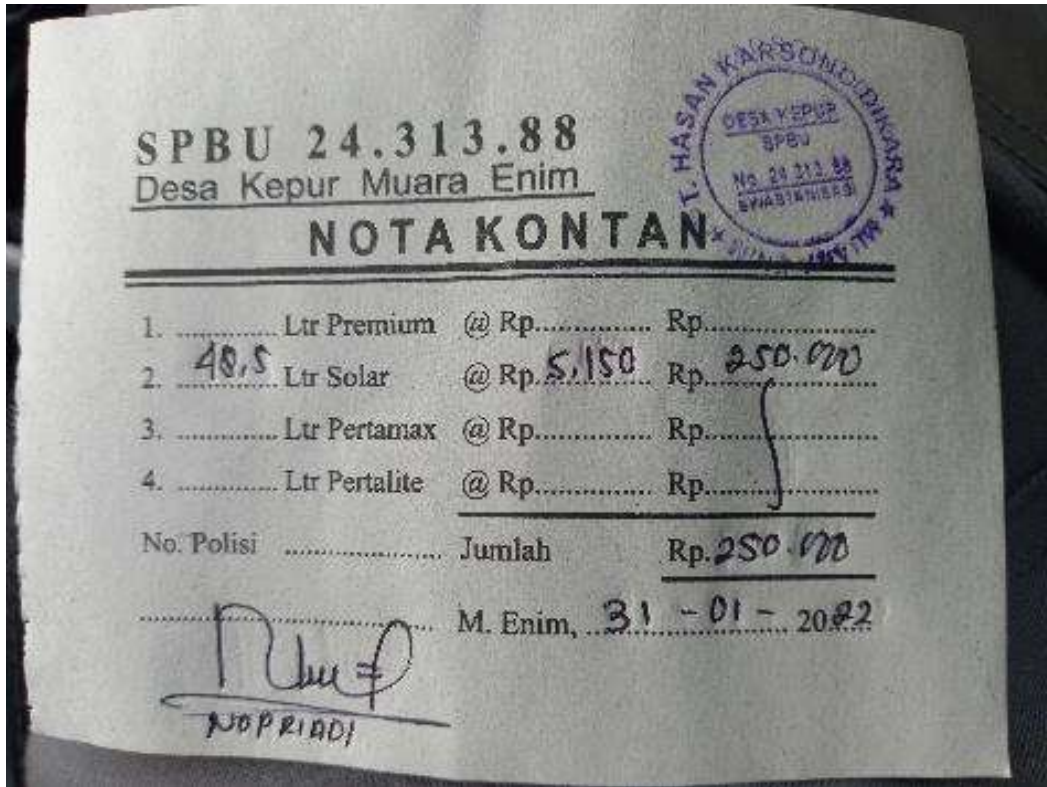 SPBU 24.313.88
Desa Kepur Muara Enim
NOTA KONTAN
T. HASAN KARSONO DIKARA
DESA KEPUR
SPBU
No. 24.313.88
1. ............ Ltr Premium @ Rp............... Rp......................
2. 48,5 Ltr Solar @ Rp. 5,150 Rp. 250.000
3. ............ Ltr Pertamax @ Rp............... Rp......................
4. ............ Ltr Pertalite @ Rp............... Rp......................
No. Polisi .................... Jumlah Rp. 250.000
M. Enim, 31 - 01 - 2022
NOPRIADI